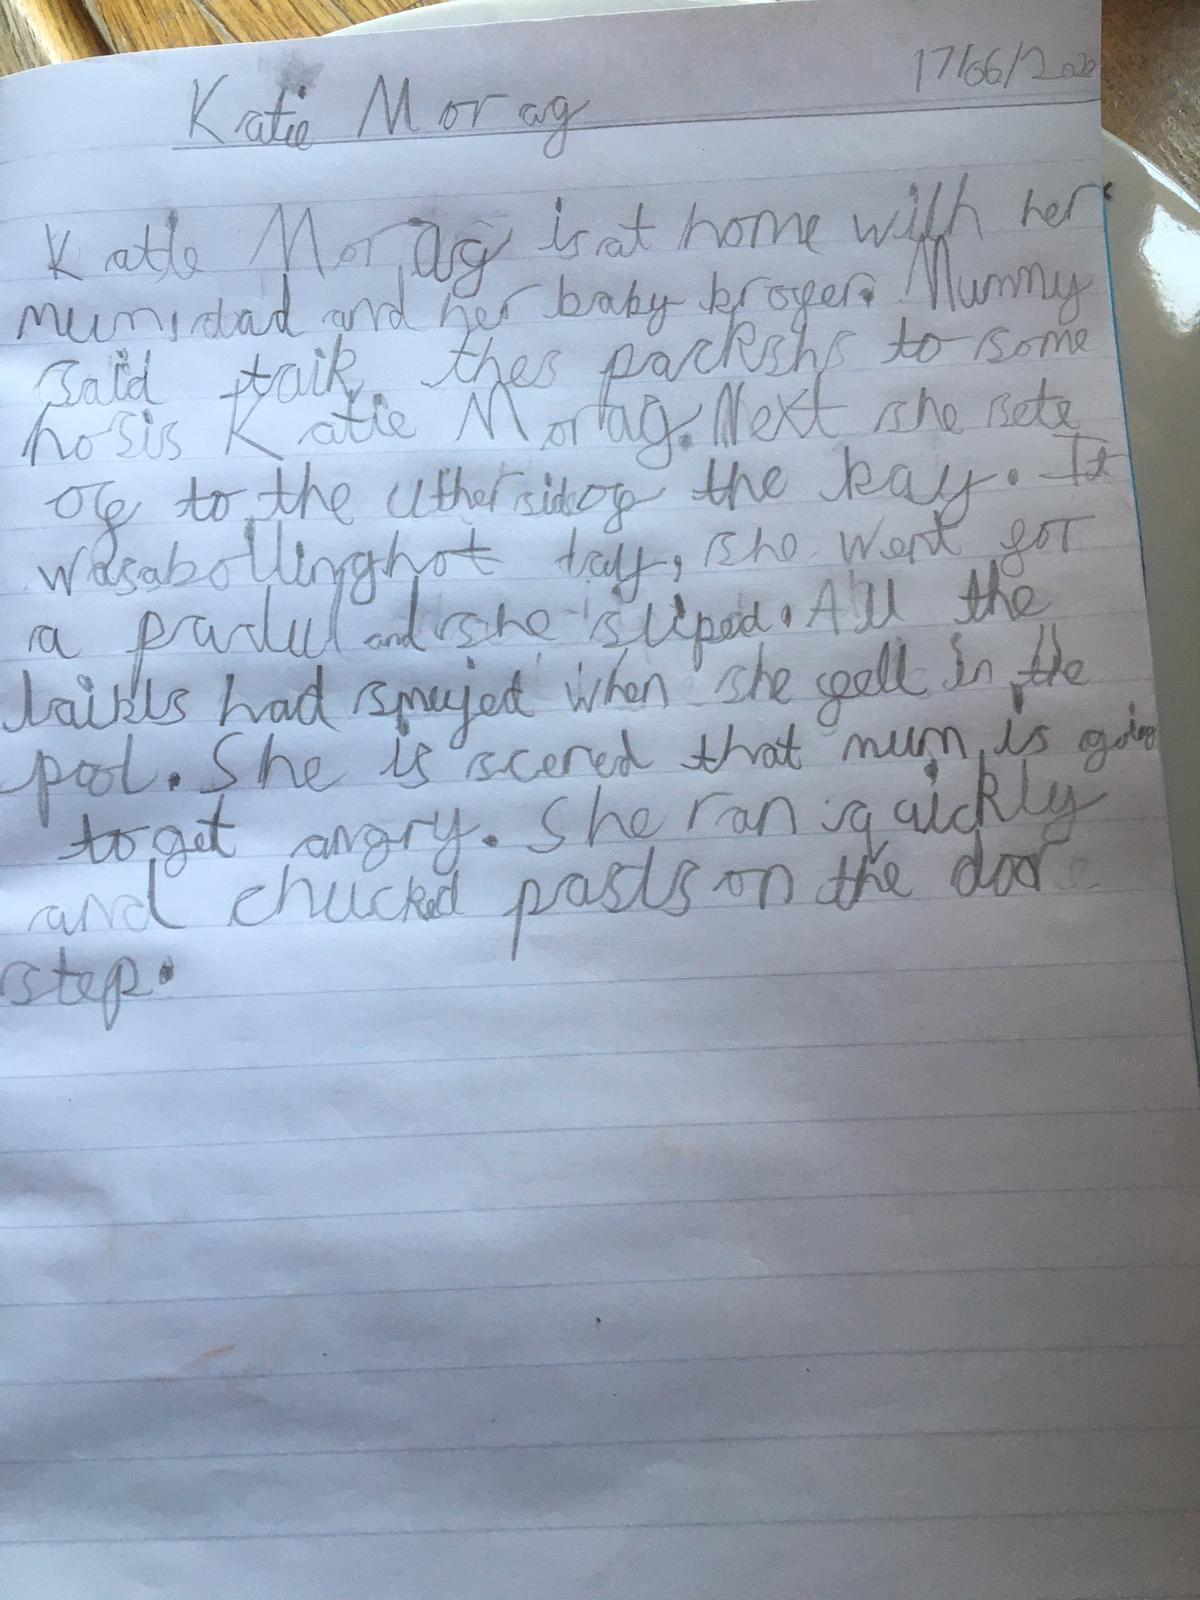 17/06/2020
Katie Morag
Katie Morag is at home with her
mum, dad and her baby broyer. Mummy
said taik thes packshs to some
hosis Katie Morag. Next she sete
of to the uther sid of the bay. It
was a bolling hot day, she went for
a padul and she sliped. All the
laibls had smujed when she fell in the
pool. She is scered that mum is going
to get angry. She ran quickly
and chucked pasls on the door
step.